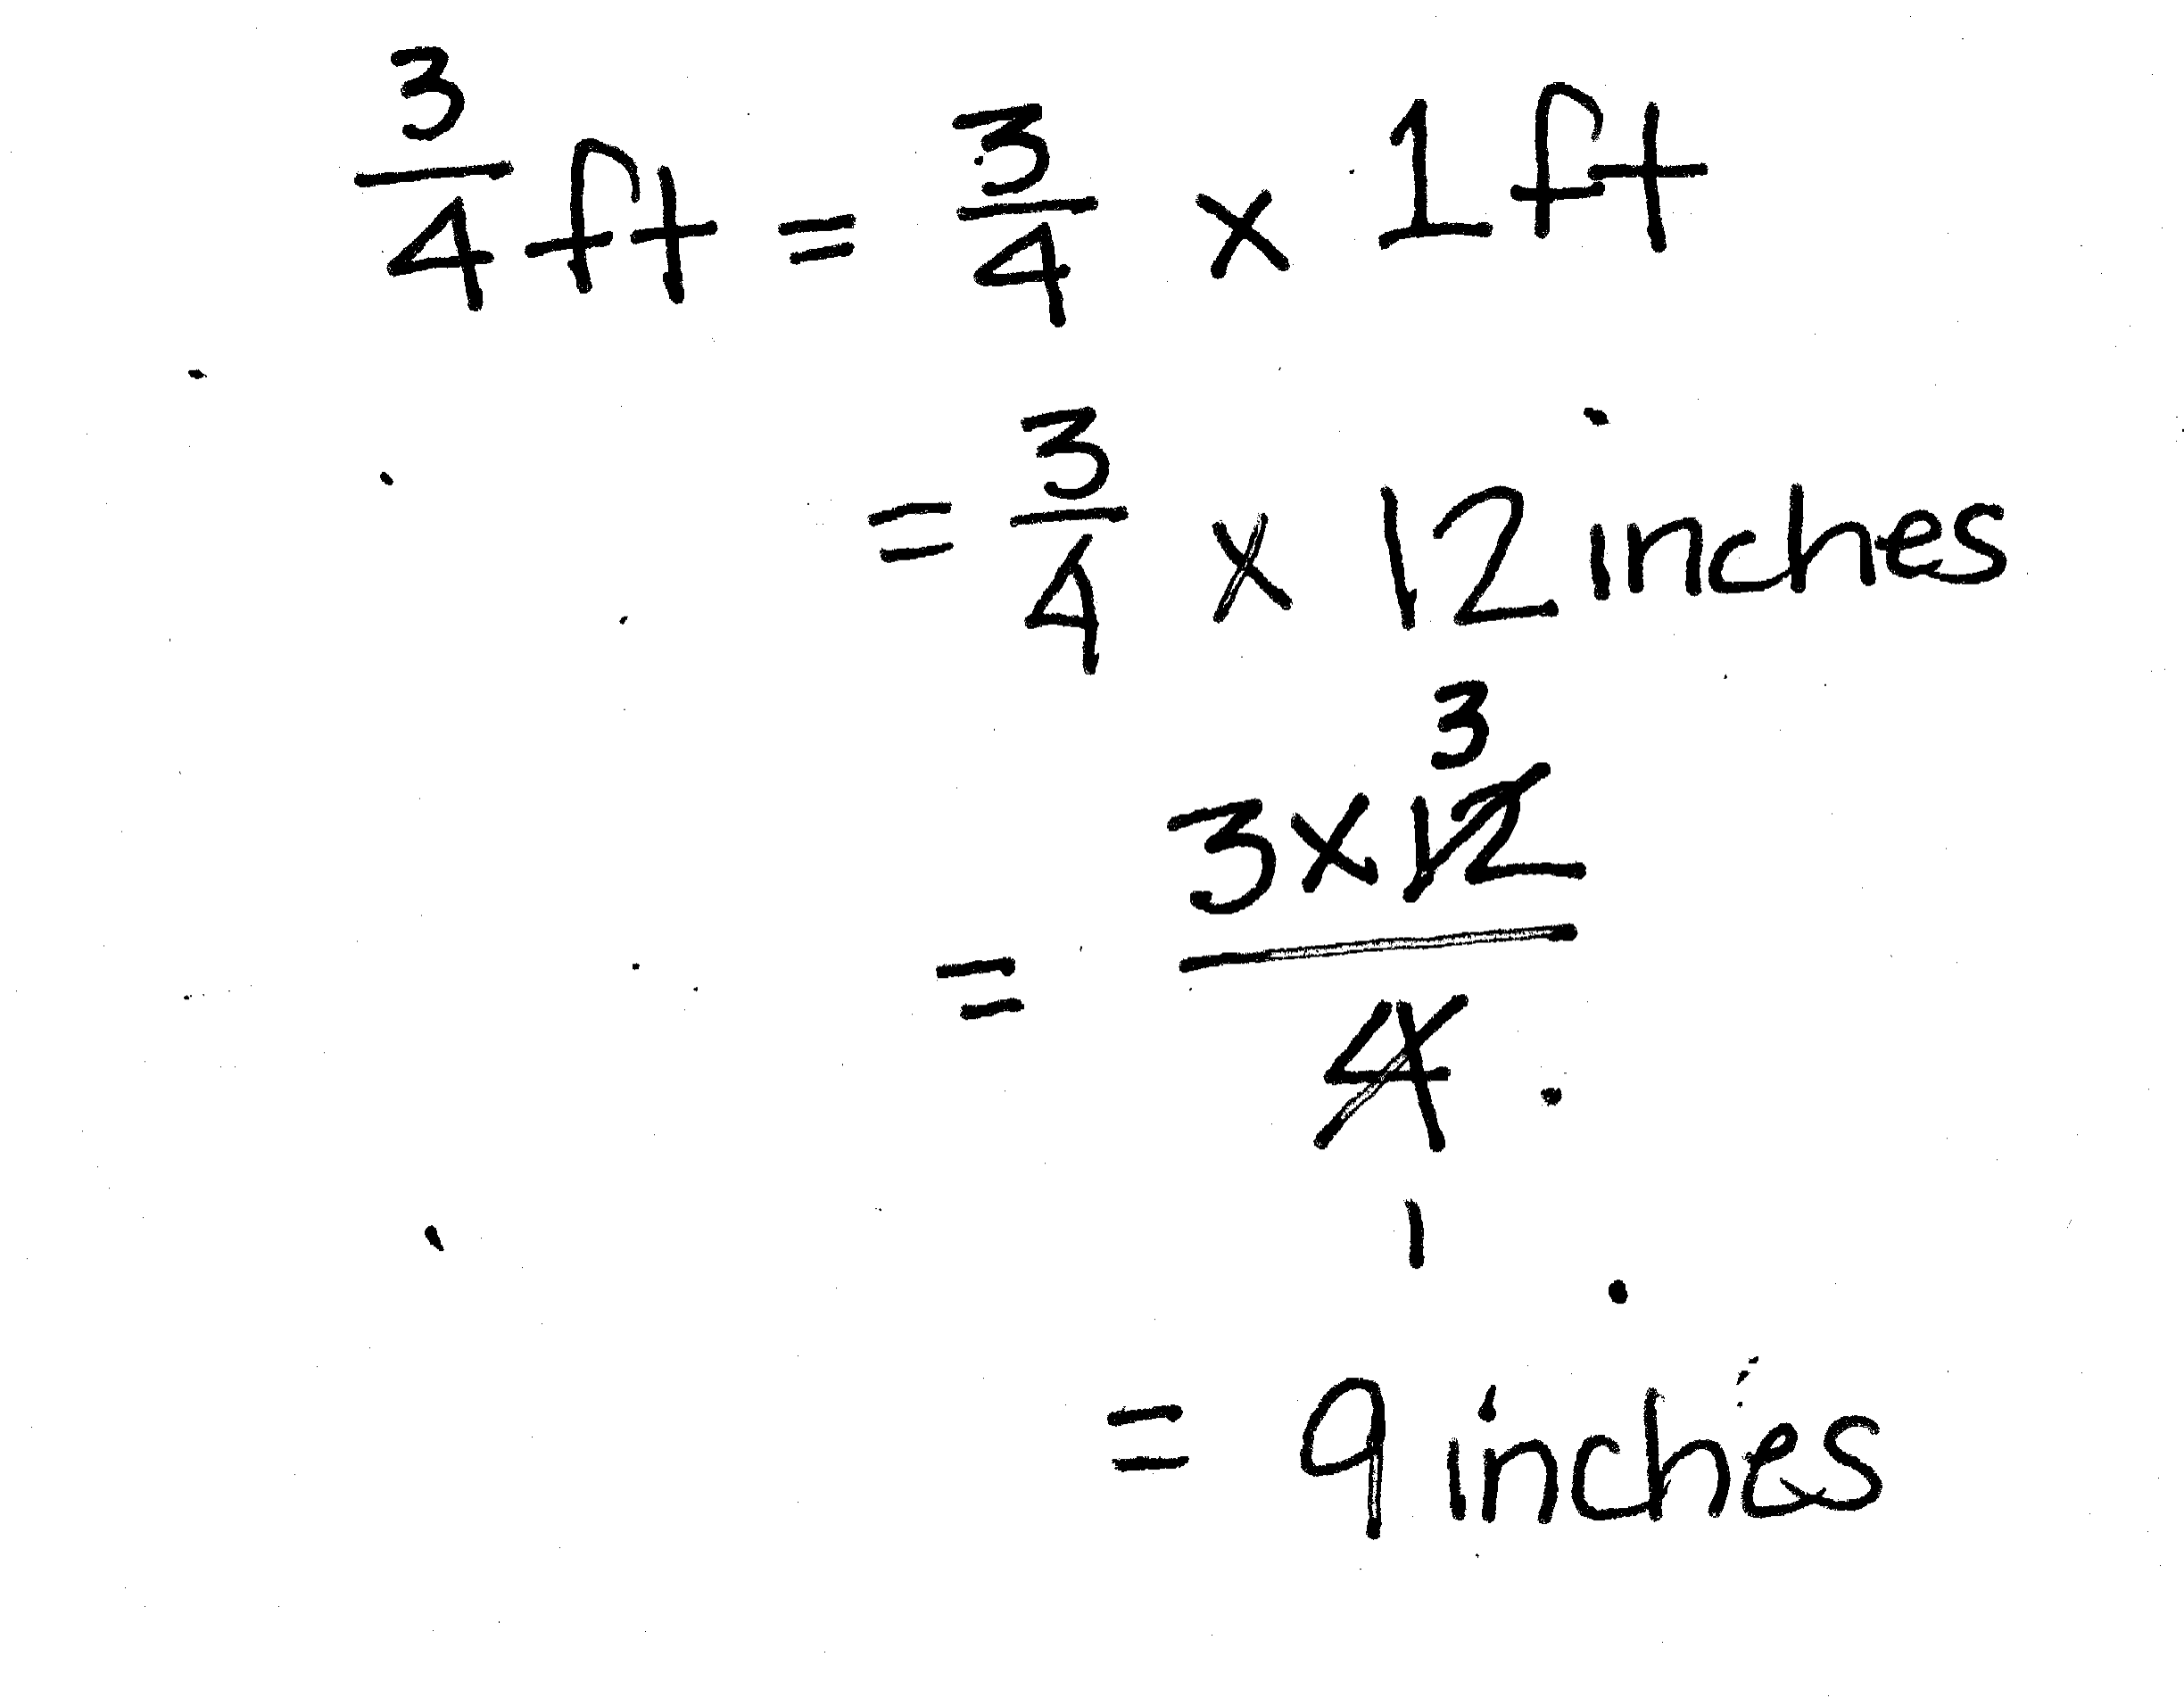 3/4 ft = 3/4 × 1ft
= 3/4 × 12 inches
3
= 3×12/4
1
= 9 inches